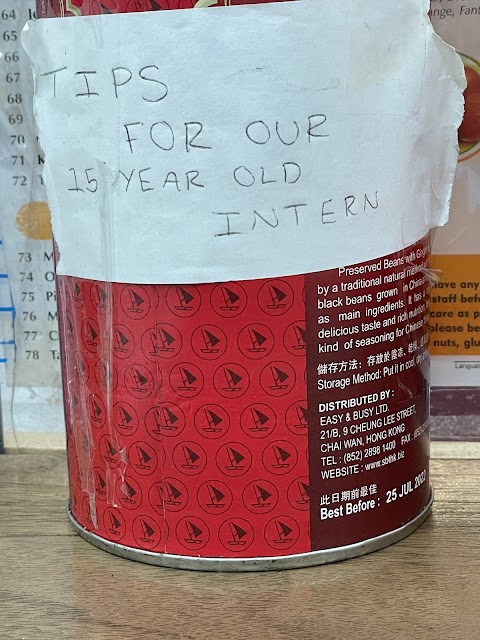 TIPS
FOR OUR
15 YEAR OLD
INTERN
Preserved Beans with Ginger
by a traditional natural
black beans grown in China
as main ingredients. It has
delicious taste and rich
kind of seasoning for Chinese
儲存方法：存放於陰涼、乾燥
Storage Method: Put it in cool, dry
DISTRIBUTED BY :
EASY & BUSY LTD.
21/B, 9 CHEUNG LEE STREET,
CHAI WAN, HONG KONG
TEL : (852) 2898 1400 FAX :
WEBSITE : www.sbfhk.biz
此日期前最佳
Best Before : 25 JUL 2022
64
65
66
67
68
69
70
71
72
73
74
75
76
77
78
have any
staff before
care as
please be
nuts,